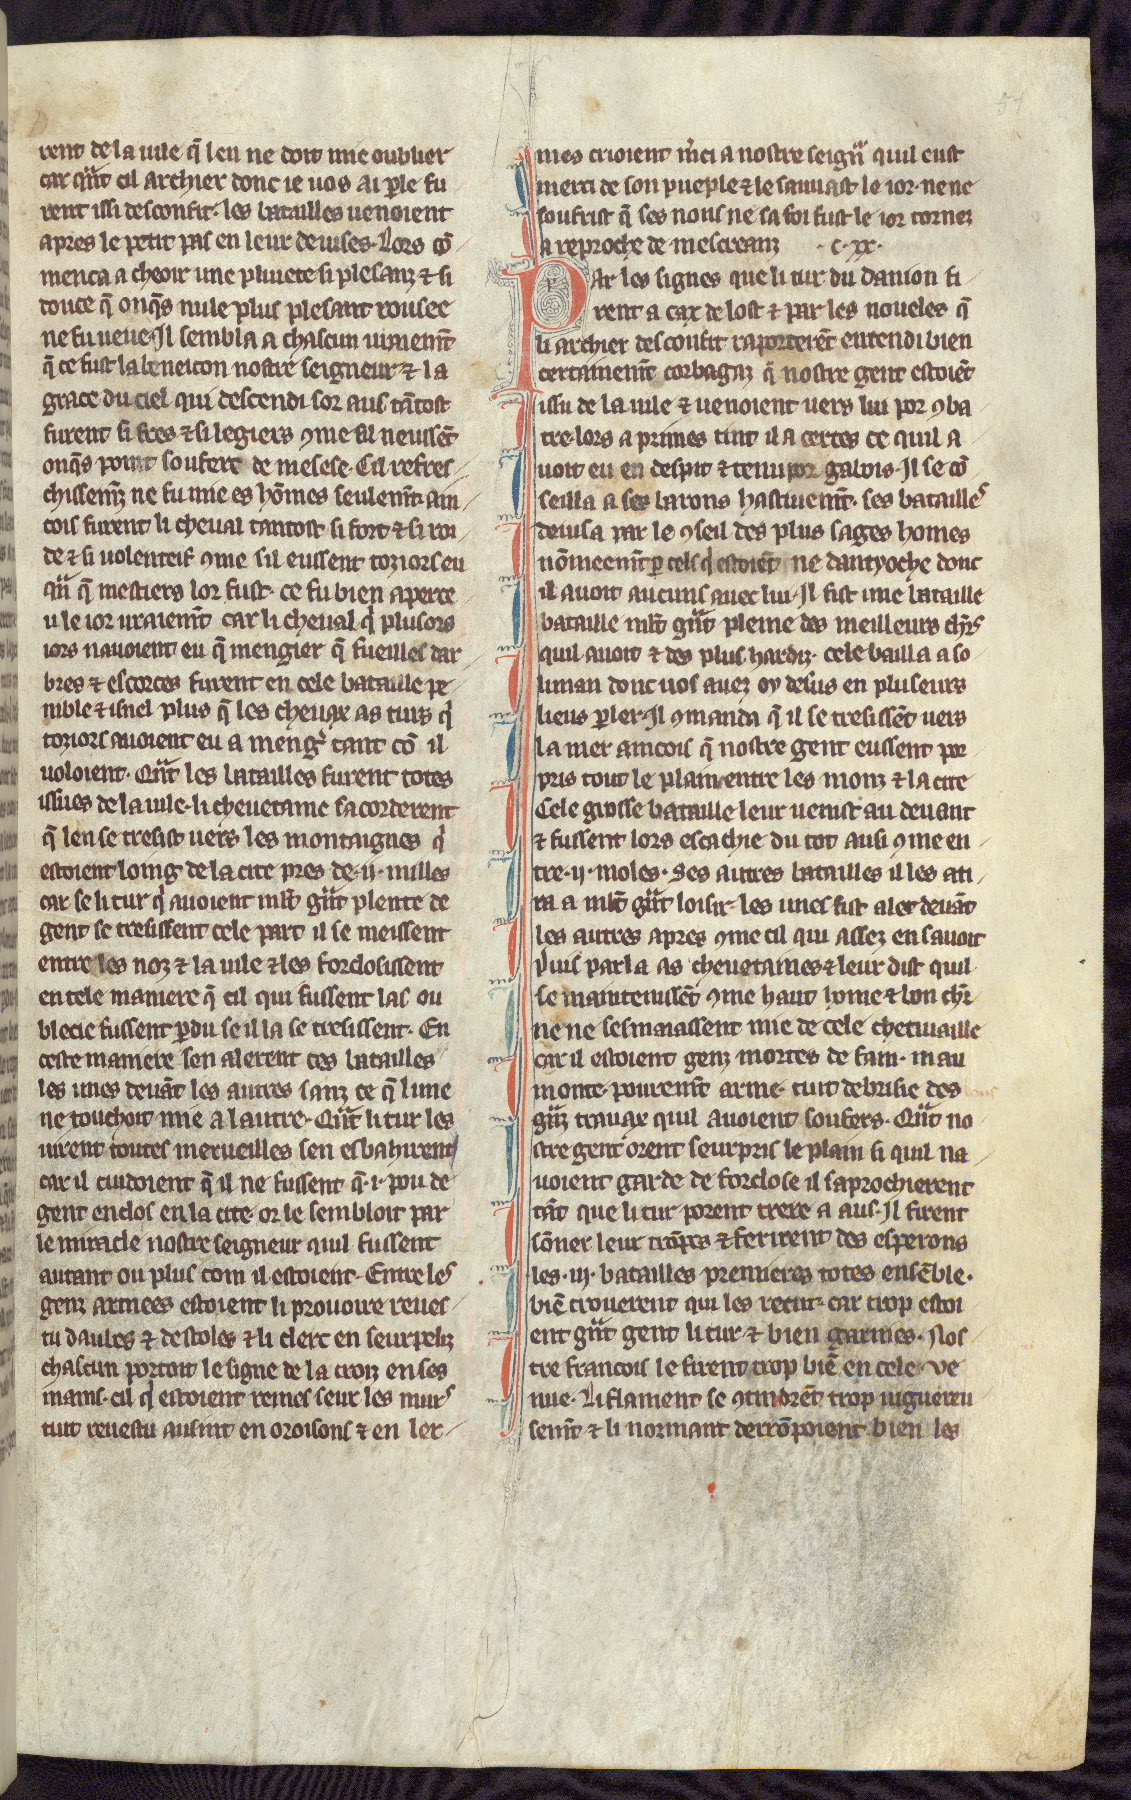 rent de la uile q̃ len ne doit mie oublier
car qn̄t cil archier donc ie uos ai ꝑle fu
rent issi desconfit· les batailles uenoient
apres le petit pas en leur deuises· Lors cō
menca a cheoir une pluiete si plesanz ⁊ si
douce q̃ onq̃s nule plus plesant rousee
ne fu ueue· Il sembla a chascun uraiemt̄
q̃ ce fust la beneicon nostre seigneur ⁊ la
grace du ciel qui descendi sor aus tātost
furent si fres ⁊ si legiers ꝯme sil neussēt
onq̃s point soufert de mesese· Cil refres
chissemz̄ ne fu mie es hōmes seulemt̄· ain
cois furent li cheual tantost si fort ⁊ si roi
de ⁊ si uolenteif ꝯme sil eussent toziors eu
qn̄ q̃ mestiers lor fust· ce fu bien aperce
u le ior uraiemt̄ car li cheual q̍ plusors
iors nauoient eu q̃ mengier q̃ fueilles dar
bres ⁊ escorces furent en cele bataille pe
nible ⁊ isnel plus q̃ les cheuax as turs q̍
toziors auoient eu a meng̍ tant cō il
uoloient· Qn̄t les batailles furent totes
issues de la uile· li cheuetaine sacorderent
q̃ len se tresist uers les montaignes q̍
estoient loing de la cite pres de ·ij· milles
car se li tur q̍ auoient mlt̄ gn̄t plente de
gent se tresissent cele part il se meissent
entre les noz ⁊ la uile ⁊ les forclosissent
en tele maniere q̃ cil qui fussent las ou
blecie fussent ꝑdu se il la se tresissent· En
ceste maniere sen alerent ces batailles
les unes deuāt les autres sanz ce q̃ lune
ne touchoit mie a lautre· Qn̄t li tur les
uirent toutes merueilles sen esbahirent
car il cuidoient q̃ il ne fussent q̃ ·i· pou de
gent enclos en la cite· or le sembloit par
le miracle nostre seigneur quil fussent
autant ou plus com il estoient· Entre les
genz armees estoient li prouoire reues
tu daubes ⁊ destoles ⁊ li clerc en seurpeliz
chascun portoit le signe de la croiz en ses
mains· cil q̍ estoient remes seur les murs
tuit reuestu ausint en oroisons ⁊ en ler
mes crioient m̄ci a nostre seign̄r quil eust
merci de son pueple ⁊ le sauuast le ior· ne ne
soufrist q̃ ses nons ne sa foi fust le ior tornez
a reproche de mescreanz ·c·xx·
Par les signes que li tur du danion fi
rent a cax de lost ⁊ par les noueles q̃
li archier desconfit raporterēt entendi bien
certainemt̄ corbagaz q̃ nostre gent estoiēt
issu de la uile ⁊ uenoient uers lui por ꝯba
tre· lors a primes tint il a certes ce quil a
uoit eu en despit ⁊ tenu por gabois· Il se cō
seilla a ses barons hastiuemt̄· ses batailles
deuisa par le ꝯseil des plus sages homes
nōmeemt̄ ꝑ cels q̍ estoiēt ne dantyoche donc
il auoit aucuns auec lui· Il fist une bataille
bataille mlt̄ gn̄t pleine des meilleurs chr̄s
quil auoit ⁊ des plus hardiz· cele bailla a so
liman donc uos auez oy desus en pluseurs
lieus ꝑler· Il ꝯmanda q̃ il se tresissēt uers
la mer aincois q̃ nostre gent eussent por
pris tout le plain entre les monz ⁊ la cite
Cele grosse bataille leur uenist au deuant
⁊ fussent lors escachie du tot ausi ꝯme en
tre ·ij· moles· Ses autres batailles il les ati
ra a mlt̄ gn̄t loisir· les unes fist aler deuāt
les autres apres ꝯme cil qui assez en sauoit
puis parla as cheuetaines ⁊ leur dist quil
se maintenissēt ꝯme haut home ⁊ bon chr̄
ne ne sesmaiassent mie de cele chetiuaille
car il estoient genz mortes de fain· mau
monte· pouremt̄ arme· tuit debrisie des
gn̄z trauax quil auoient soufers· Qn̄t no
stre gent orent seurpris le plain si quil na
uoient garde de forclose il saprochierent
tāt que li tur porent trere a aus· Il firent
sōner leur trōpes ⁊ ferirent des esperons
les ·iij· batailles premieres totes ensēble·
biē trouerent qui les recut· car trop estoi
ent gn̄t gent li tur ⁊ bien garnies· Nos
tre francois le firent trop biē en cele ve
nue· Li flament se ꝯtindrēt trop uiguereu
semt̄ ⁊ li normant derrōpoient bien les